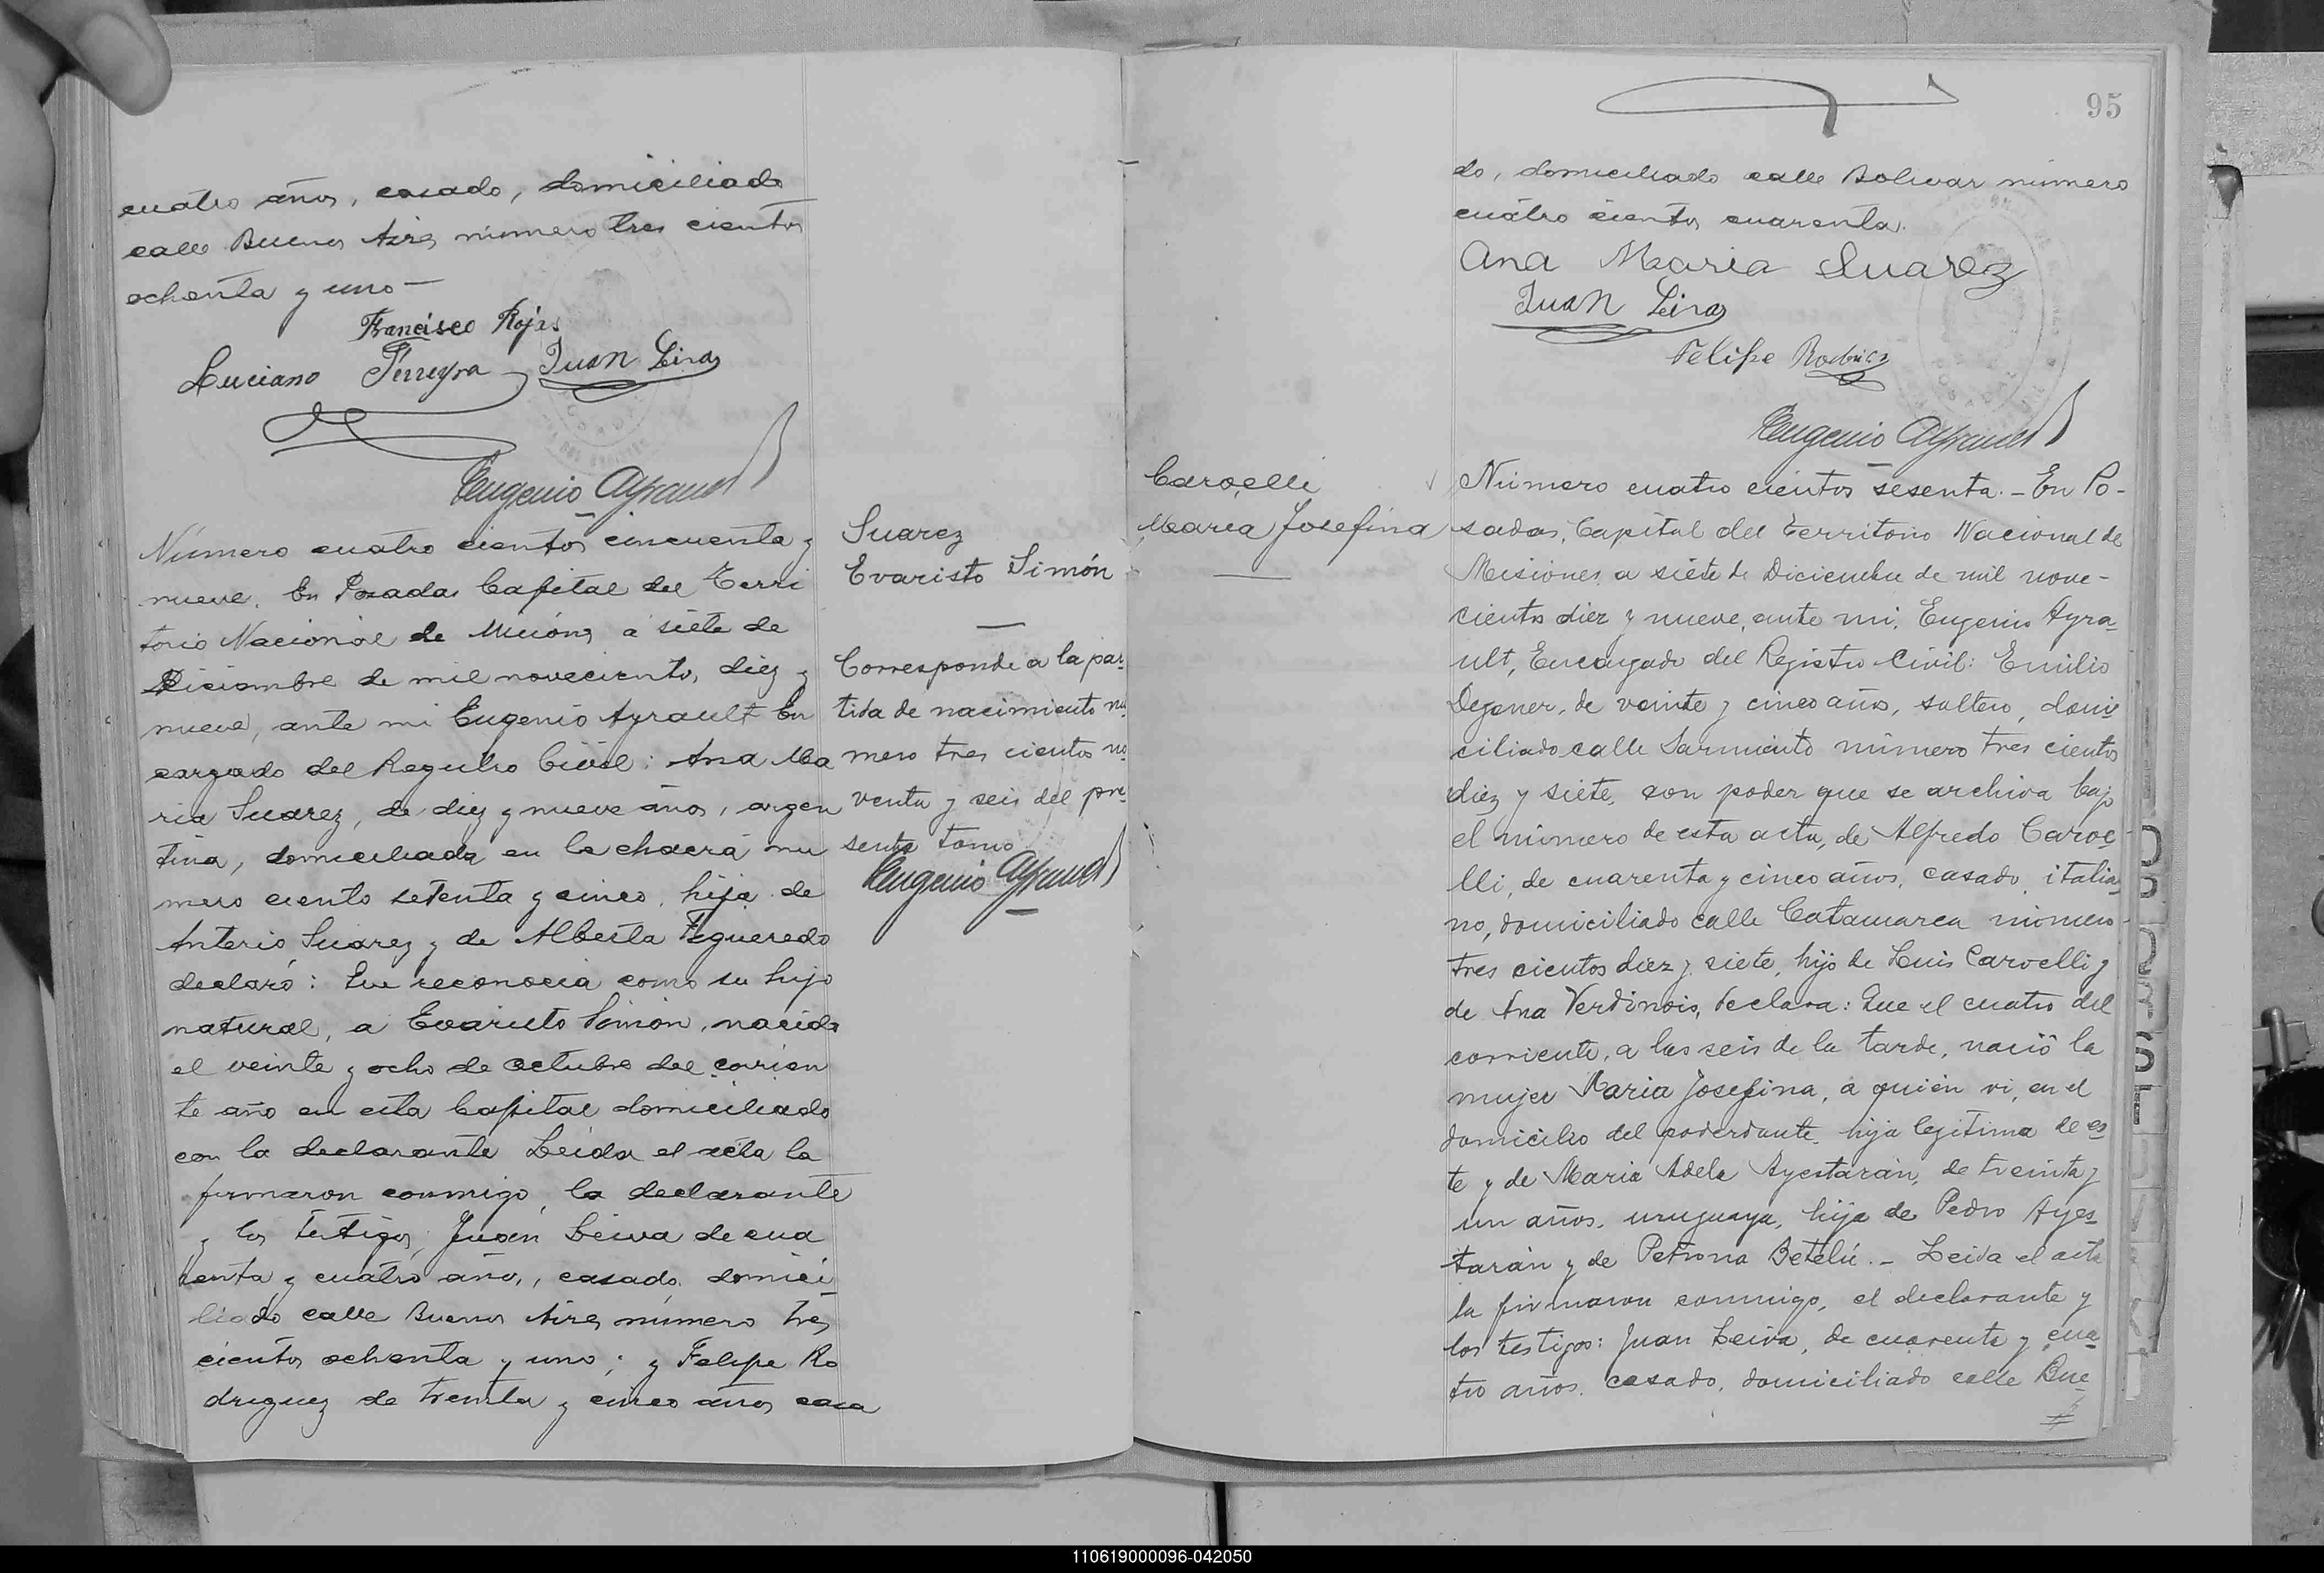 cuatro años, casado, domiciliado
calle Buenos Aires número tres cientos
ochenta y uno —
Francisco Rojas
Luciano Ferreyra Juan Leiva
Eugenio Ayrault
Número cuatro cientos cincuenta y
nueve. En Posadas Capital del Terri
torio Nacional de Misiones a siete de
Diciembre de mil novecientos diez y
nueve, ante mi Eugenio Ayrault En
cargado del Registro Civil: Ana Ma
ria Suarez, de diez y nueve años, argen
tina, domiciliada en la chacra nu
mero ciento setenta y cinco, hija de
Anterio Suarez y de Alberta Figueredo
declaró: Que reconocia como su hijo
natural, a Evaristo Simón, nacido
el veinte y ocho de octubre del corrien
te año en esta Capital domiciliado
con la declarante Leida el acta la
firmaron conmigo, la declarante
y los testigos, Juan Leiva de cua
renta y cuatro años, casado, domici
liado calle Buenos Aires número tres
cientos ochenta y uno; y Felipe Ro
driguez de treinta y cinco años casa
Suarez
Evaristo Simón
—
Corresponde a la par-
tida de nacimiento nu-
mero tres cientos no-
venta y seis del pre-
sente tomo
Eugenio Ayrault
95
do, domiciliado calle Bolivar número
cuatro cientos cuarenta.
Ana Maria Suarez
Juan Leiva
Felipe Rodriguez
Eugenio Ayrault
Carvelli
Maria Josefina
—
Número cuatro cientos sesenta. - En Po-
sadas, Capital del Territorio Nacional de
Misiones, a siete de Diciembre de mil nove-
cientos diez y nueve, ante mi, Eugenio Ayra-
ult, Encargado del Registro Civil: Emilio
Degener, de veinte y cinco años, soltero, domi-
ciliado calle Sarmiento número tres cientos
diez y siete, con poder que se archiva bajo
el número de esta acta, de Alfredo Carve-
lli, de cuarenta y cinco años, casado, italia-
no, domiciliado calle Catamarca número
tres cientos diez y siete, hijo de Luis Carvelli y
de Ana Verdinois, declara: Que el cuatro del
corriente, a las seis de la tarde, nació la
mujer Maria Josefina, a quién vi, en el
domicilio del poderdante, hija legitima de es-
te y de Maria Adela Ayestarán, de treinta y
un años, uruguaya, hija de Pedro Ayes-
tarán y de Petrona Betelú. - Leida el acta
la firmaron conmigo, el declarante y
los testigos: Juan Leiva, de cuarenta y cua-
tro años, casado, domiciliado calle Bue-
110619000096-042050